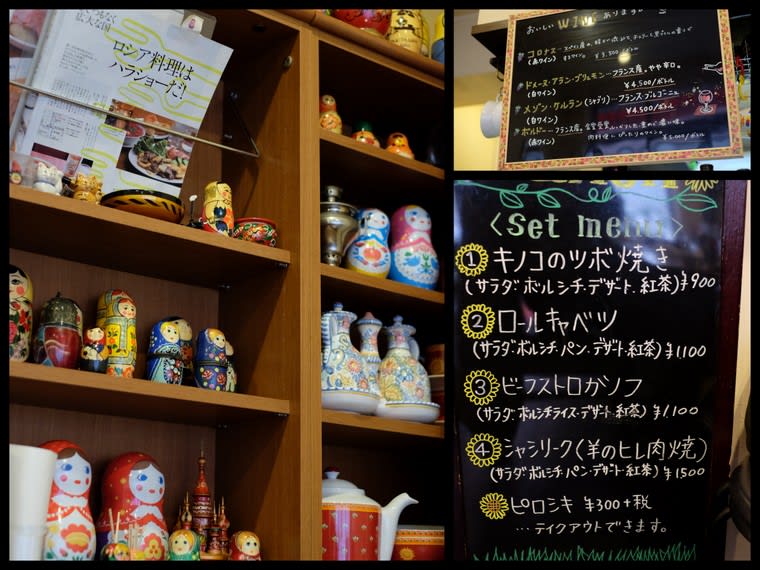 いつもなく
広大な国
ロシア料理は
ハラショーだ!
おいしい WINE あります
コロナス…スペイン産の
(赤ワイン)
¥3,500/ボトル
ドメーヌ・アラン・ブリュモン…フランス産。やや辛口。
(白ワイン) ¥4,500/ボトル
メゾン・ケルラン(シャブリ)…フランス・ブルゴーニュ
(白ワイン) ¥4,500/ボトル
ボルドー…フランス産。
(赤ワイン) 肉料理にぴったりのワイン。 ¥5,000/ボトル
<Set menu>
① キノコのツボ焼き
(サラダ・ボルシチ・デザート・紅茶) ¥900
② ロールキャベツ
(サラダ・ボルシチ・パン・デザート・紅茶) ¥1100
③ ビーフストロガノフ
(サラダ・ボルシチライス・デザート・紅茶) ¥1,100
④ シャシリーク(羊のヒレ肉焼)
(サラダ・ボルシチ・パン・デザート・紅茶) ¥1500
ピロシキ ¥300+税
…テイクアウトできます。